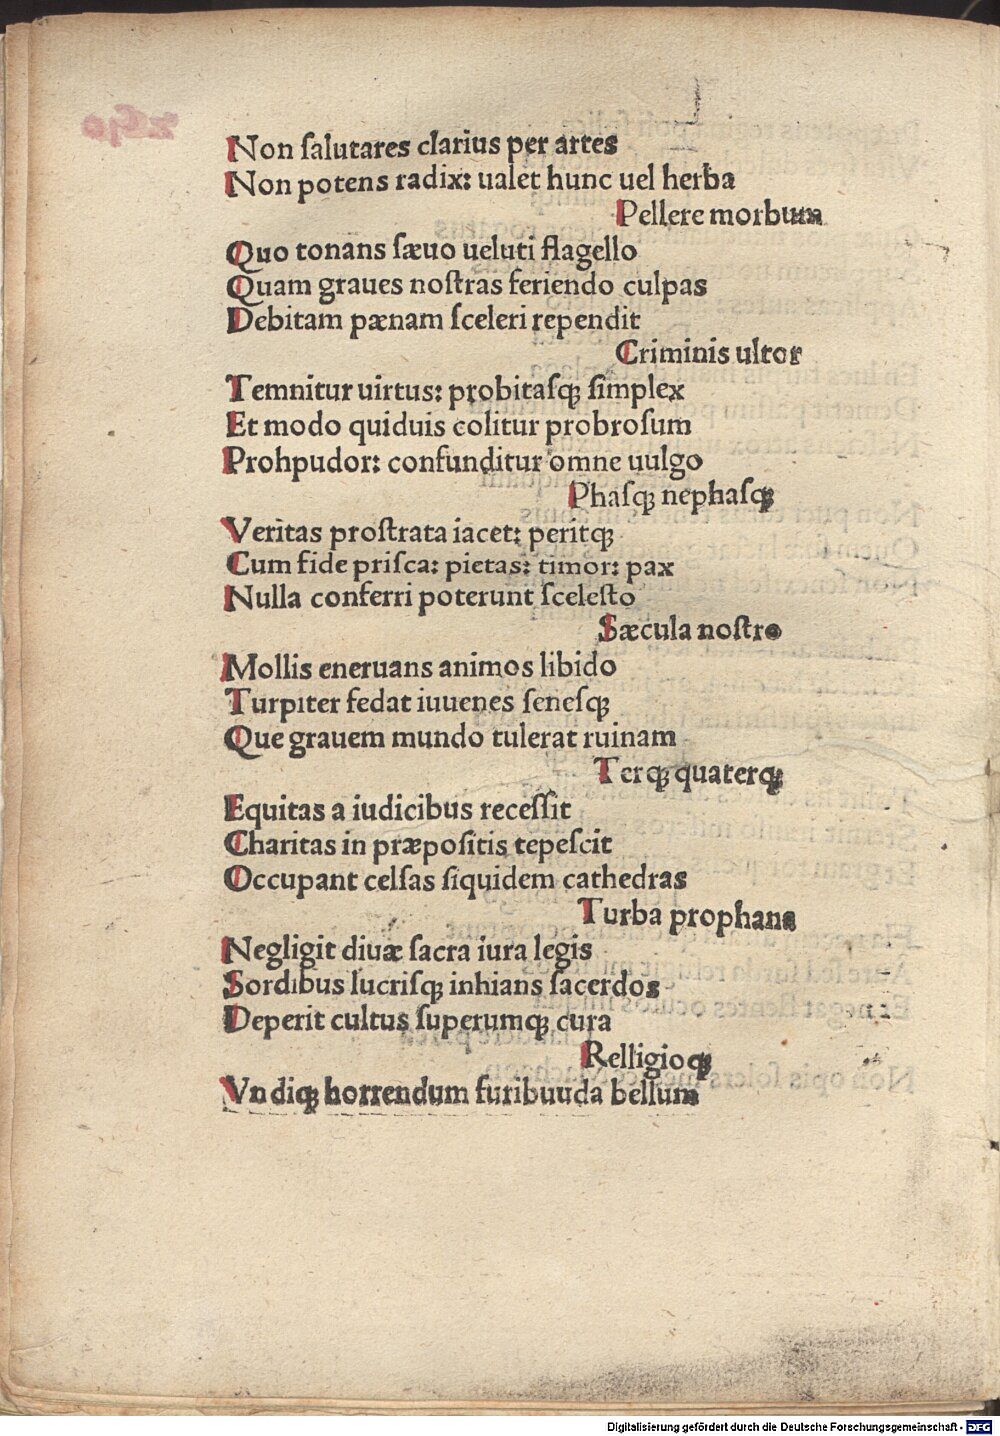 Non ſalutares clarius per artes
Non potens radix: ualet hunc uel herba
Pellere morbum
Quo tonans ſæuo ueluti flagello
Quam graues noſtras feriendo culpas
Debitam pænam ſceleri rependit
Criminis ultor
Temnitur uirtus: probitaſqꝫ ſimplex
Et modo quiduis colitur probroſum
Prohpudor: confunditur omne uulgo
Phaſqꝫ nephaſqꝫ
Veritas proſtrata iacet: peritqꝫ
Cum fide priſca: pietas: timor: pax
Nulla conferri poterunt ſceleſto
Sæcula noſtro
Mollis eneruans animos libido
Turpiter fedat iuuenes ſeneſqꝫ
Que grauem mundo tulerat ruinam
Terqꝫ quaterqꝫ
Equitas a iudicibus receſſit
Charitas in præpoſitis tepeſcit
Occupant celſas ſiquidem cathedras
Turba prophana
Negligit diuæ ſacra iura legis
Sordibus lucriſqꝫ inhians ſacerdos
Deperit cultus ſuperumqꝫ cura
Relligioqꝫ
Vndiqꝫ horrendum furibuuda bellum
Digitalisierung gefördert durch die Deutsche Forschungsgemeinschaft - DFG